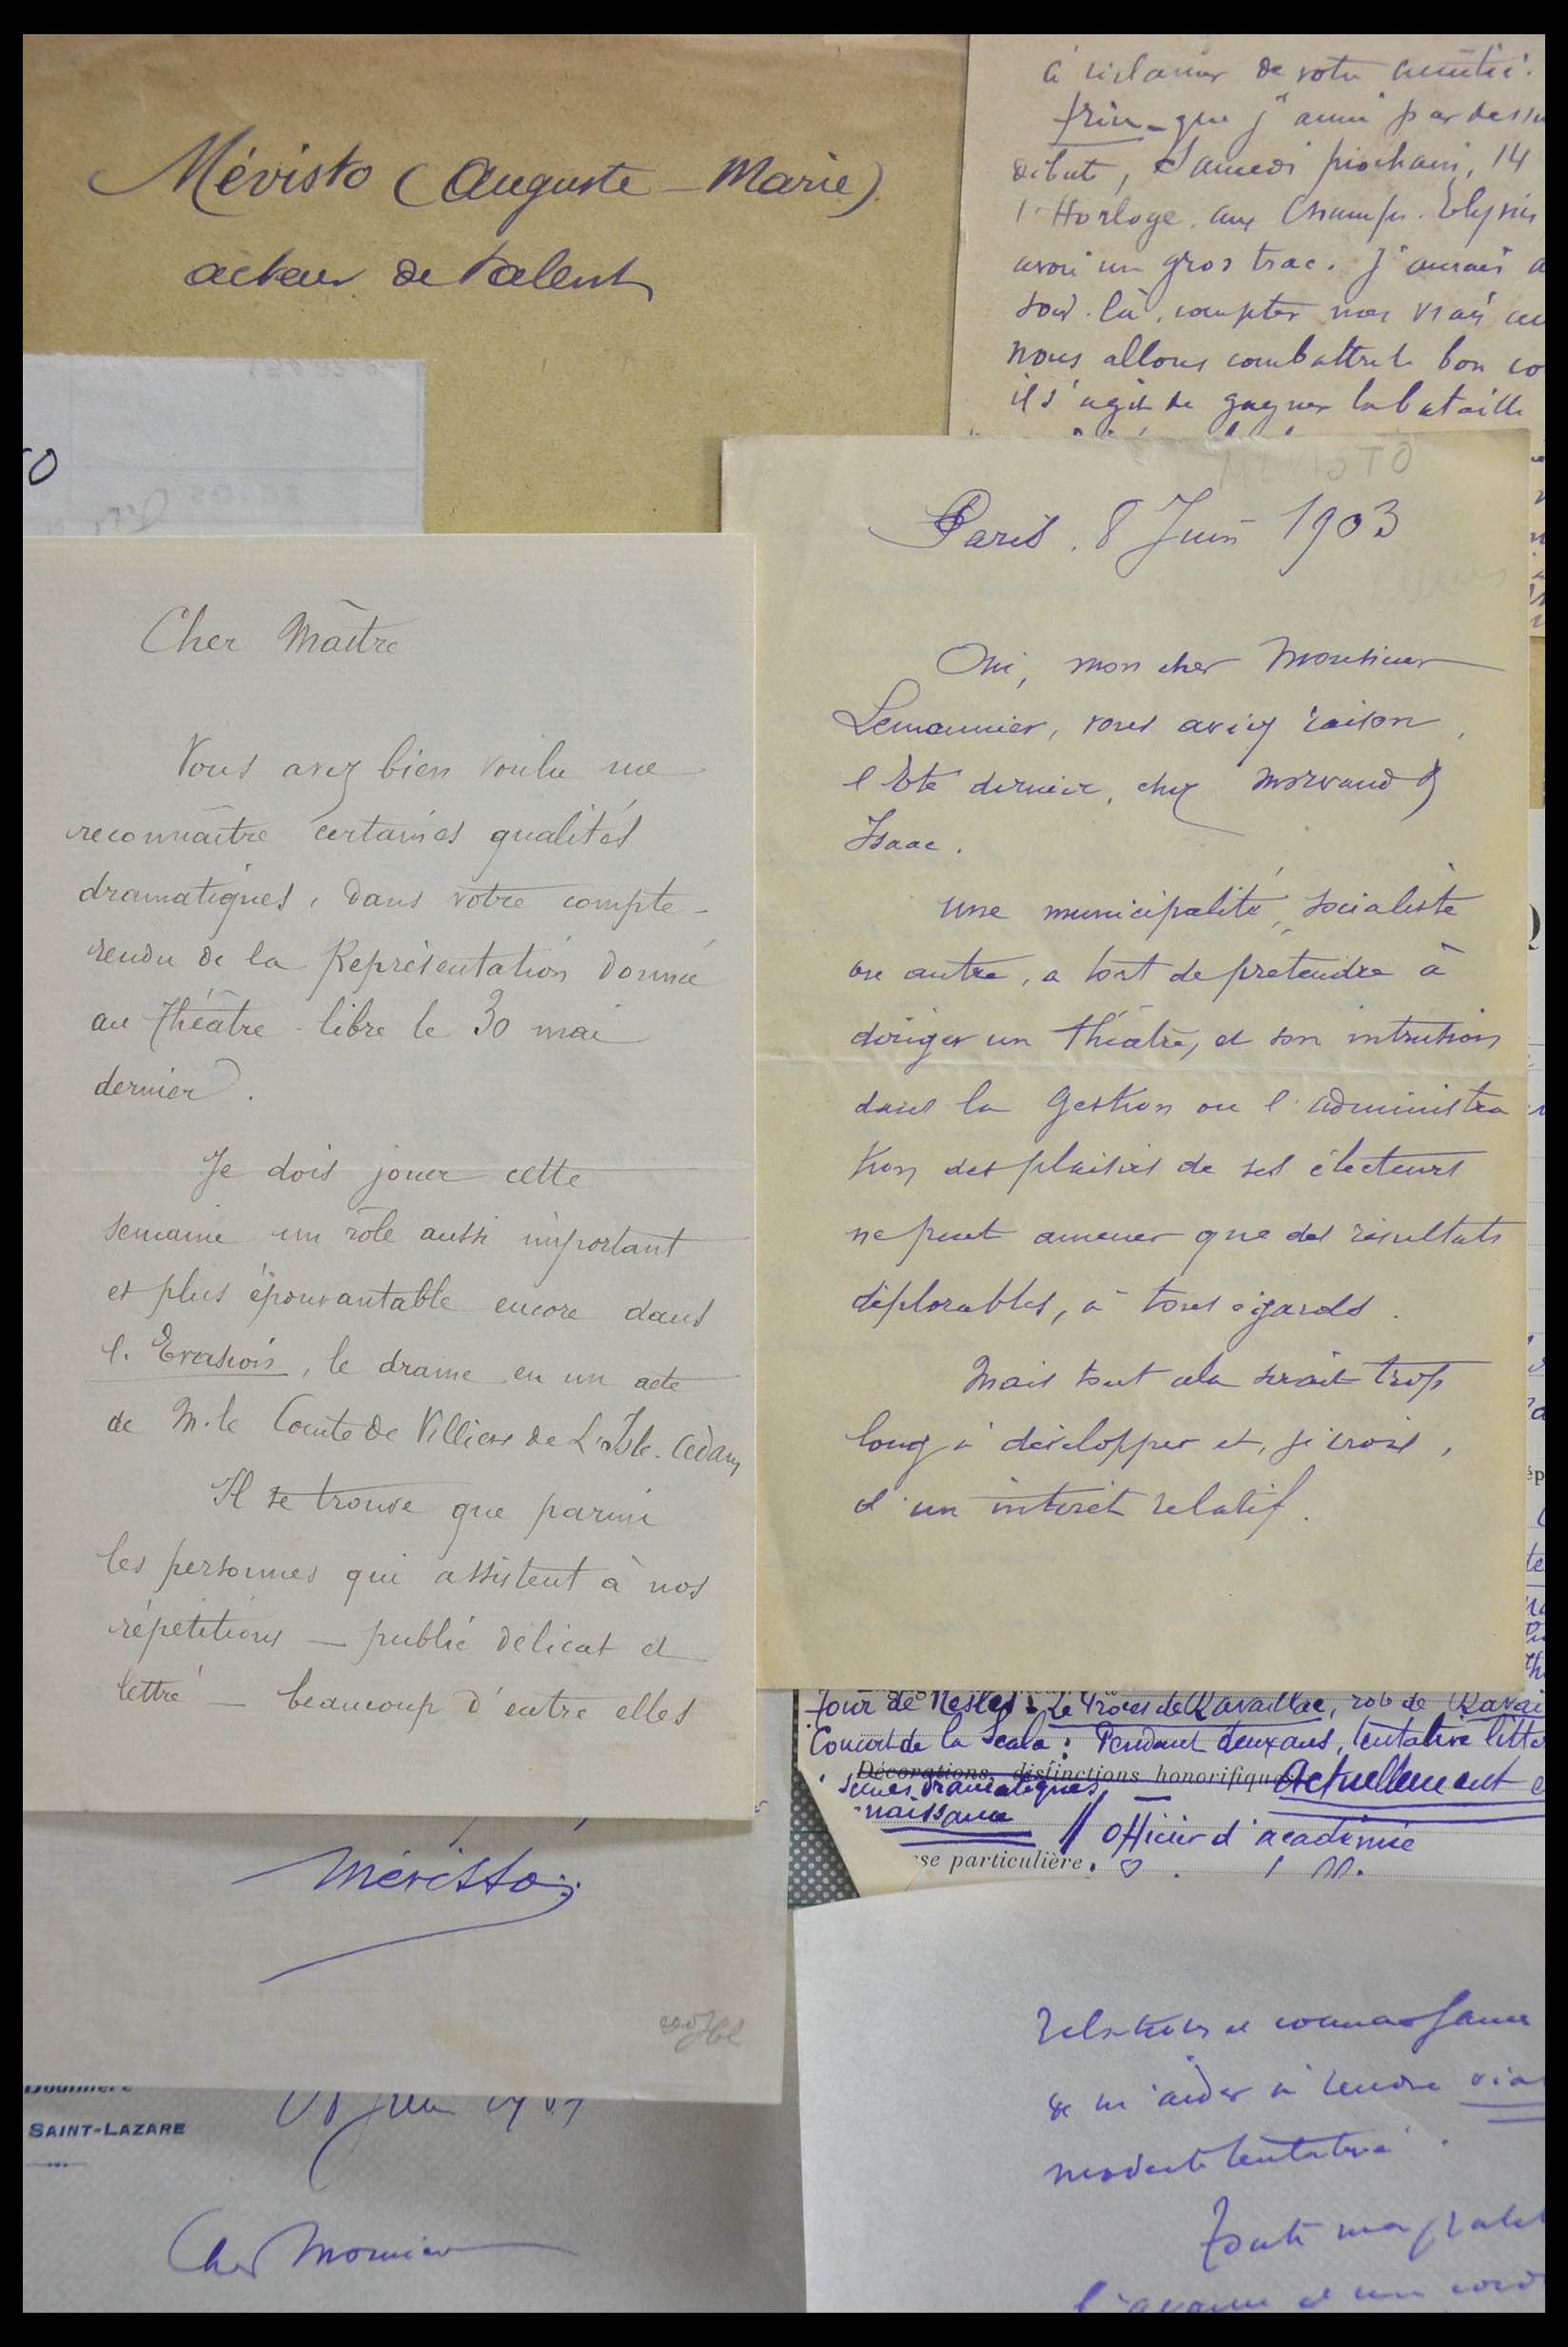 Mévisto (Auguste-Marie)
acteur de talent
à réclamer de votre amitié.
que j'aime par dessu
débute, Samedi prochain, 14
l'Horloge aux Champs-Elysées
avoir un gros trac. J'aurais
soir-là, compter mes vrais
nous allons combattre le bon co
il s'agit de gagner la bataille
Paris. 8 Juin 1903
Oui, mon cher Monsieur
Lemonnier, vous aviez raison,
l'Eté dernier, chez Morvand &
Isaac.
Une municipalité, socialiste
ou autre, a tort de prétendre à
diriger un théâtre, et son intrusion
dans la gestion ou l'administra
tion des plaisirs de ses électeurs
ne peut amener que des résultats
déplorables, à tous égards.
Mais tout cela serait trop
long à développer et, je crois,
d'un intérêt relatif.
Cher Maître
Vous avez bien voulu me
reconnaître certaines qualités
dramatiques, dans votre compte-
rendu de la Représentation donnée
au Théâtre-libre le 30 mai
dernier.
Je dois jouer cette
semaine un rôle aussi important
et plus épouvantable encore dans
l'Evasion, le drame en un acte
de M. le Comte de Villiers de L'Isle-Adam
Il se trouve que parmi
les personnes qui assistent à nos
répétitions — public délicat et
lettré — beaucoup d'entre elles
Mévisto
SAINT-LAZARE
Cher Monsieur
Tour de Nesles: Le Procès de Ravaillac, rôle de Ravai
Concert de la Scala: Pendant deux ans, tentative litté
Décorations, distinctions honorifiques Actuellement
scènes dramatiques
naissance // Officier d'académie
sse particulière.
relations et connaissance
de m'aider à rendre
modeste tentative.
Toute ma